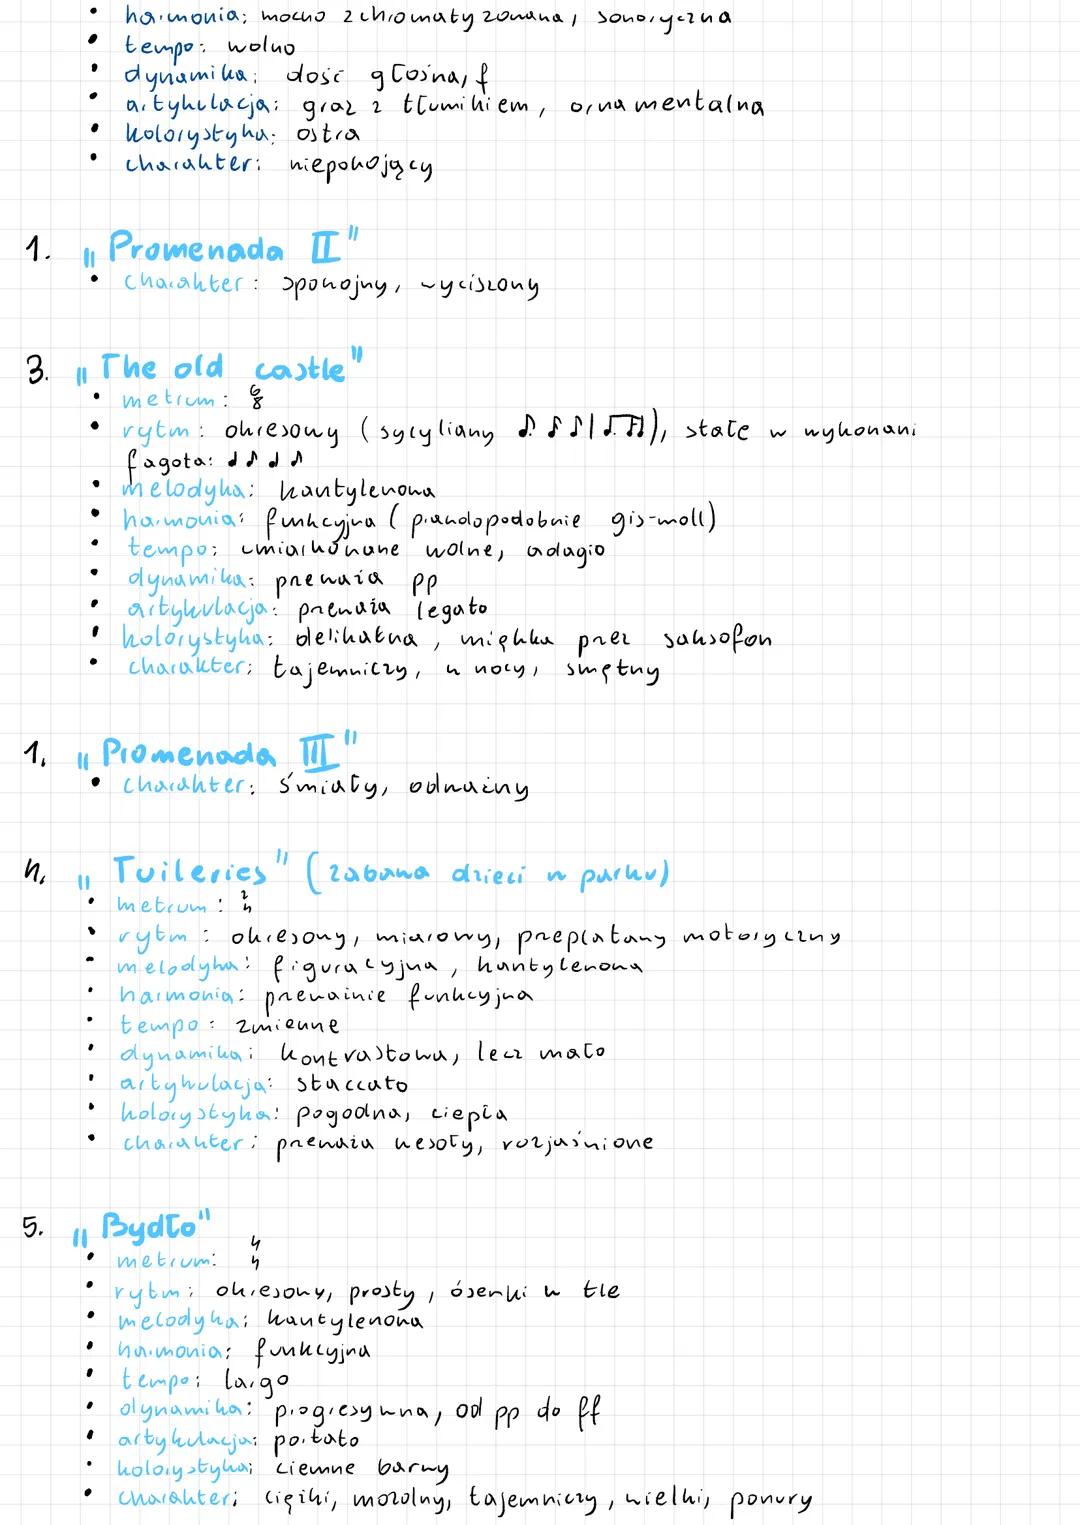 • harmonia: mocno zchromatyzowana, sonoryczna
• tempo: wolno
• dynamika: dość głośna, f
• artykulacja: graz z tłumikiem, ornamentalna
• kolorystyka: ostra
• charakter: niepokojący
1. „Promenada II"
• charakter: spokojny, wyciszony
3. „The old castle"
• metrum: 6/8
• rytm: okresowy (sycyliany ♪. ♬ ♪ | ♫), stałe w wykonani
fagota: ♩ ♪ ♩ ♪
• melodyka: kantylenowa
• harmonia: funkcyjna (prawdopodobnie gis-moll)
• tempo: umiarkowane wolne, adagio
• dynamika: przeważa pp
• artykulacja: przeważa legato
• kolorystyka: delikatna, miękka przez saksofon
• charakter: tajemniczy, w nocy, smętny
1. „Promenada III"
• charakter: śmiały, odważny
4. „Tuileries" (zabawa dzieci w parku)
• metrum: 2/4
• rytm: okresowy, miarowy, przeplatany motoryczny
• melodyka: figuracyjna, kantylenowa
• harmonia: przeważnie funkcyjna
• tempo: zmienne
• dynamika: kontrastowa, lecz mało
• artykulacja: staccato
• kolorystyka: pogodna, ciepła
• charakter: przeważa wesoły, rozjaśnione
5. „Bydło"
• metrum: 4/4
• rytm: okresowy, prosty, ósemki w tle
• melodyka: kantylenowa
• harmonia: funkcyjna
• tempo: largo
• dynamika: progresywna, od pp do ff
• artykulacja: portato
• kolorystyka: ciemne barwy
• charakter: ciężki, mozolny, tajemniczy, wielki, ponury